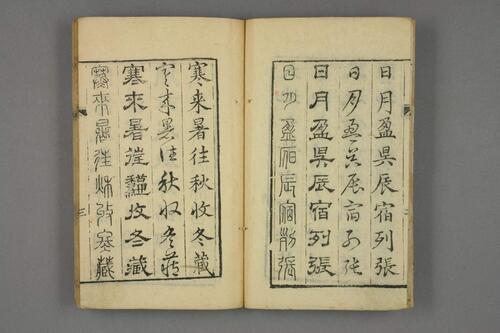 日月盈昃辰宿列張
日月盈昃辰宿列張
日月盈昃辰宿列張
日月盈昃辰宿列張
寒来暑往秋收冬藏
寒来暑往秋收冬藏
寒來暑往秋收冬藏
寒來暑往秋收冬藏
三